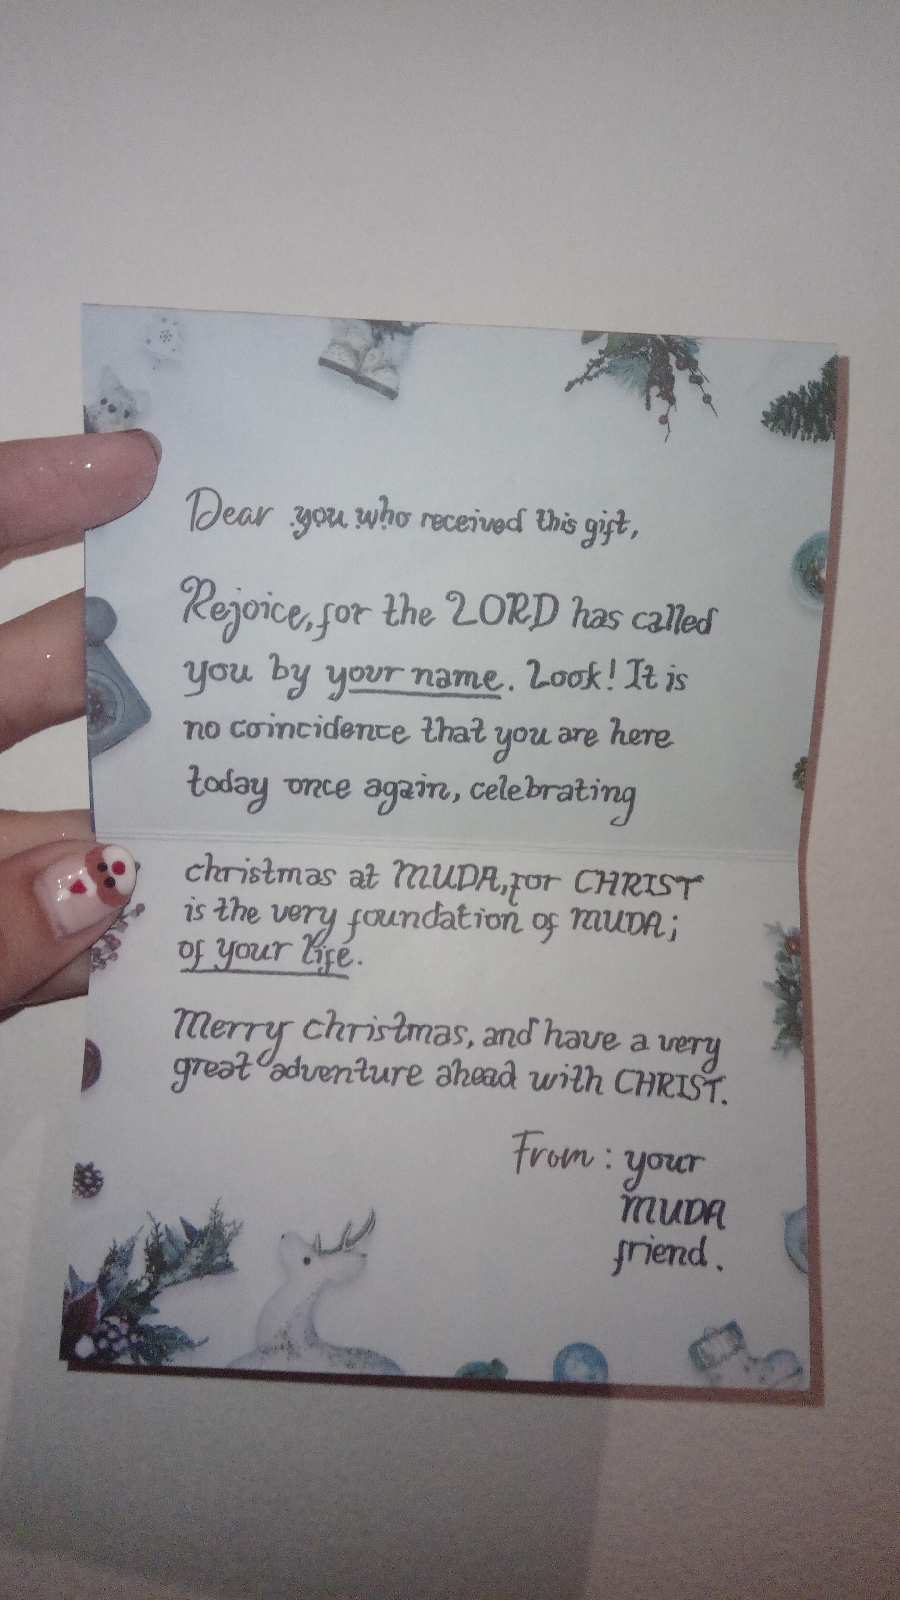 Dear you who received this gift,
Rejoice, for the LORD has called
you by your name. Look! It is
no coincidence that you are here
today once again, celebrating
christmas at MUDA, for CHRIST
is the very foundation of MUDA;
of your life.
Merry christmas, and have a very
great adventure ahead with CHRIST.
From: your
MUDA
friend.